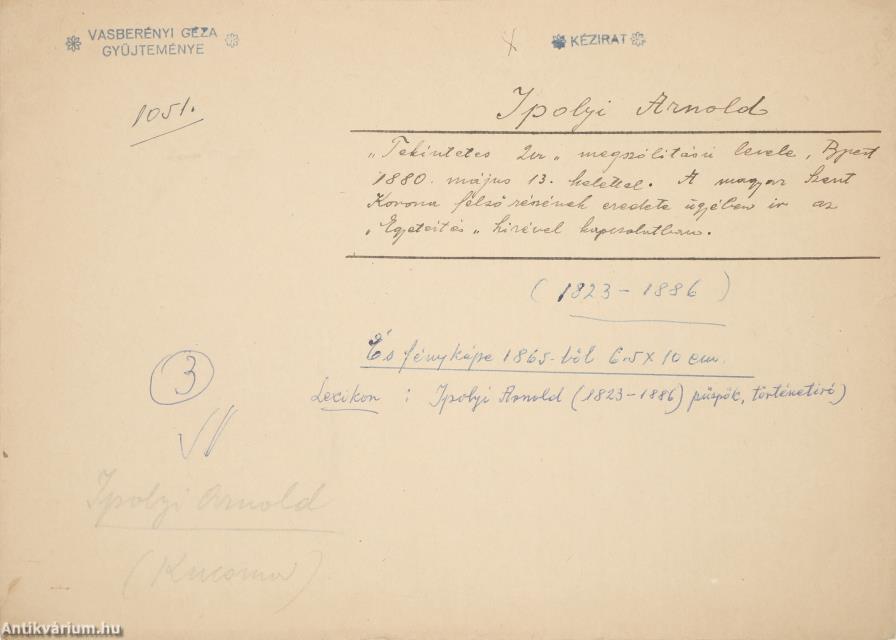 VASBERÉNYI GÉZA
GYŰJTEMÉNYE
KÉZIRAT
1051.
Ipolyi Arnold
„Tekintetes Úr„ megszólitású levele, Bpest
1880. május 13. kelettel. A magyar Szent
Korona felső részének eredete ügyében ir az
„Egyetértés„ hirével kapcsolatban.
(1823-1886)
És fényképe 1865-ből 6.5x10 cm.
3
Lexikon : Ipolyi Arnold (1823-1886) püspök, történetiró)
Ipolyi Arnold
Antikvárium.hu